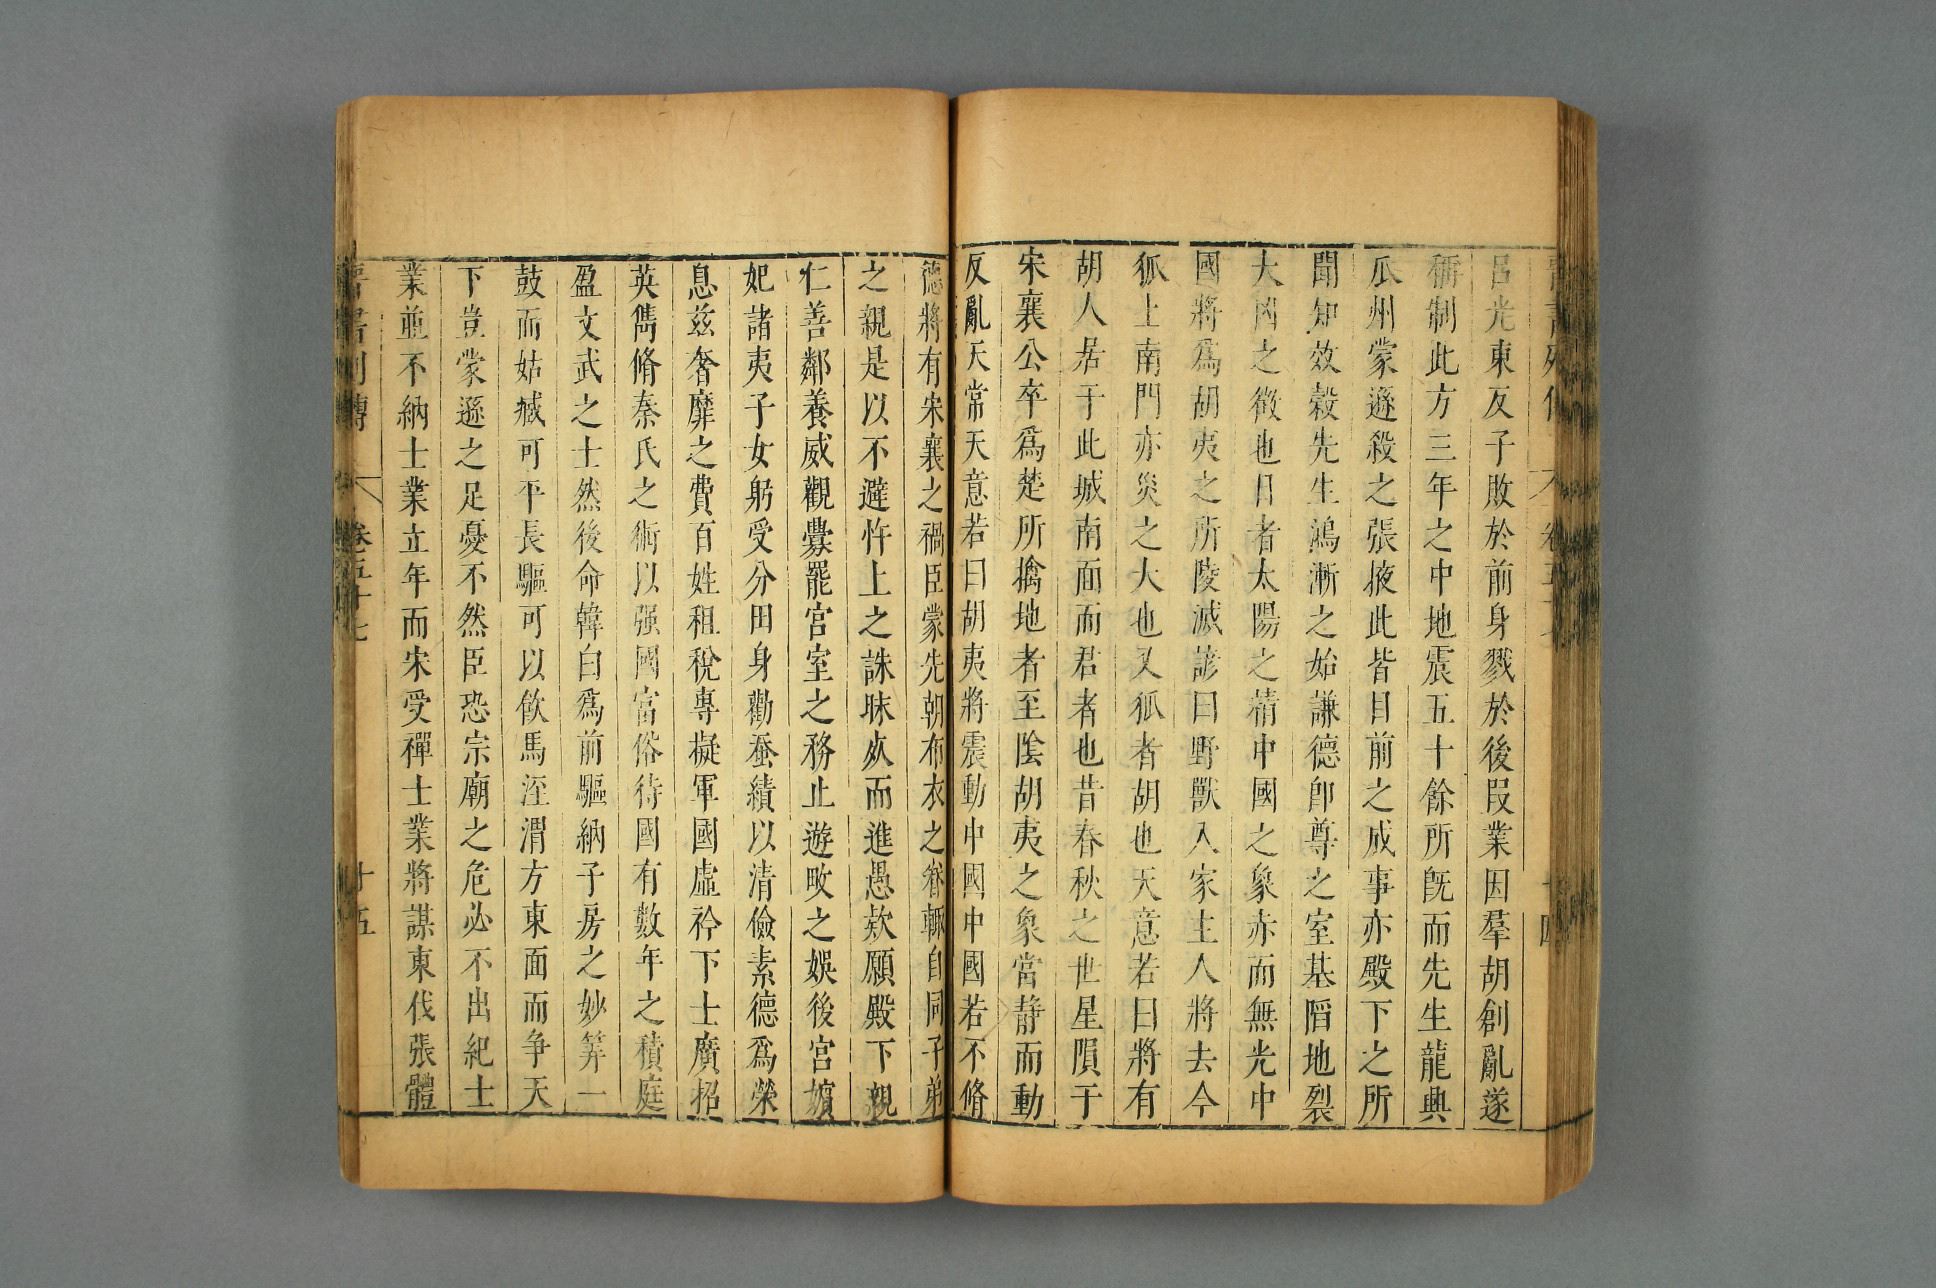 呂光東反子敗於前身戮於後段業因羣胡創亂遂
稱制此方三年之中地震五十餘所旣而先生龍興
瓜州蒙遜殺之張掖此皆目前之成事亦殿下之所
聞知效穀先生鴻漸之始謙德卽尊之室基陷地裂
大凶之徵也日者太陽之精中國之象赤而無光中
國將爲胡夷之所陵滅諺曰野獸入家主人將去今
狐上南門亦災之大也又狐者胡也天意若曰將有
胡人居于此城南面而君者也昔春秋之世星隕于
宋襄公卒爲楚所擒地者至陰胡夷之象當静而動
反亂天常天意若曰胡夷將震動中國中國若不脩
德將有宋襄之禍臣蒙先朝布衣之眷輒自同子弟
之親是以不避忤上之誅昧死而進愚款願殿下親
仁善鄰養威觀釁罷宮室之務止遊畋之娛後宮嬪
妃諸夷子女躬受分田身勸蚕績以清儉素德爲榮
息茲奢靡之費百姓租稅專擬軍國虛衿下士廣招
英儁脩秦氏之術以强國富俗待國有數年之積庭
盈文武之士然後命韓白爲前驅納子房之妙筭一
鼓而姑臧可平長驅可以飲馬涇渭方東面而争天
下豈蒙遜之足憂不然臣恐宗廟之危必不出紀士
業並不納士業立年而宋受禪士業將謀東伐張體
晋書列傳 卷五十七 十五